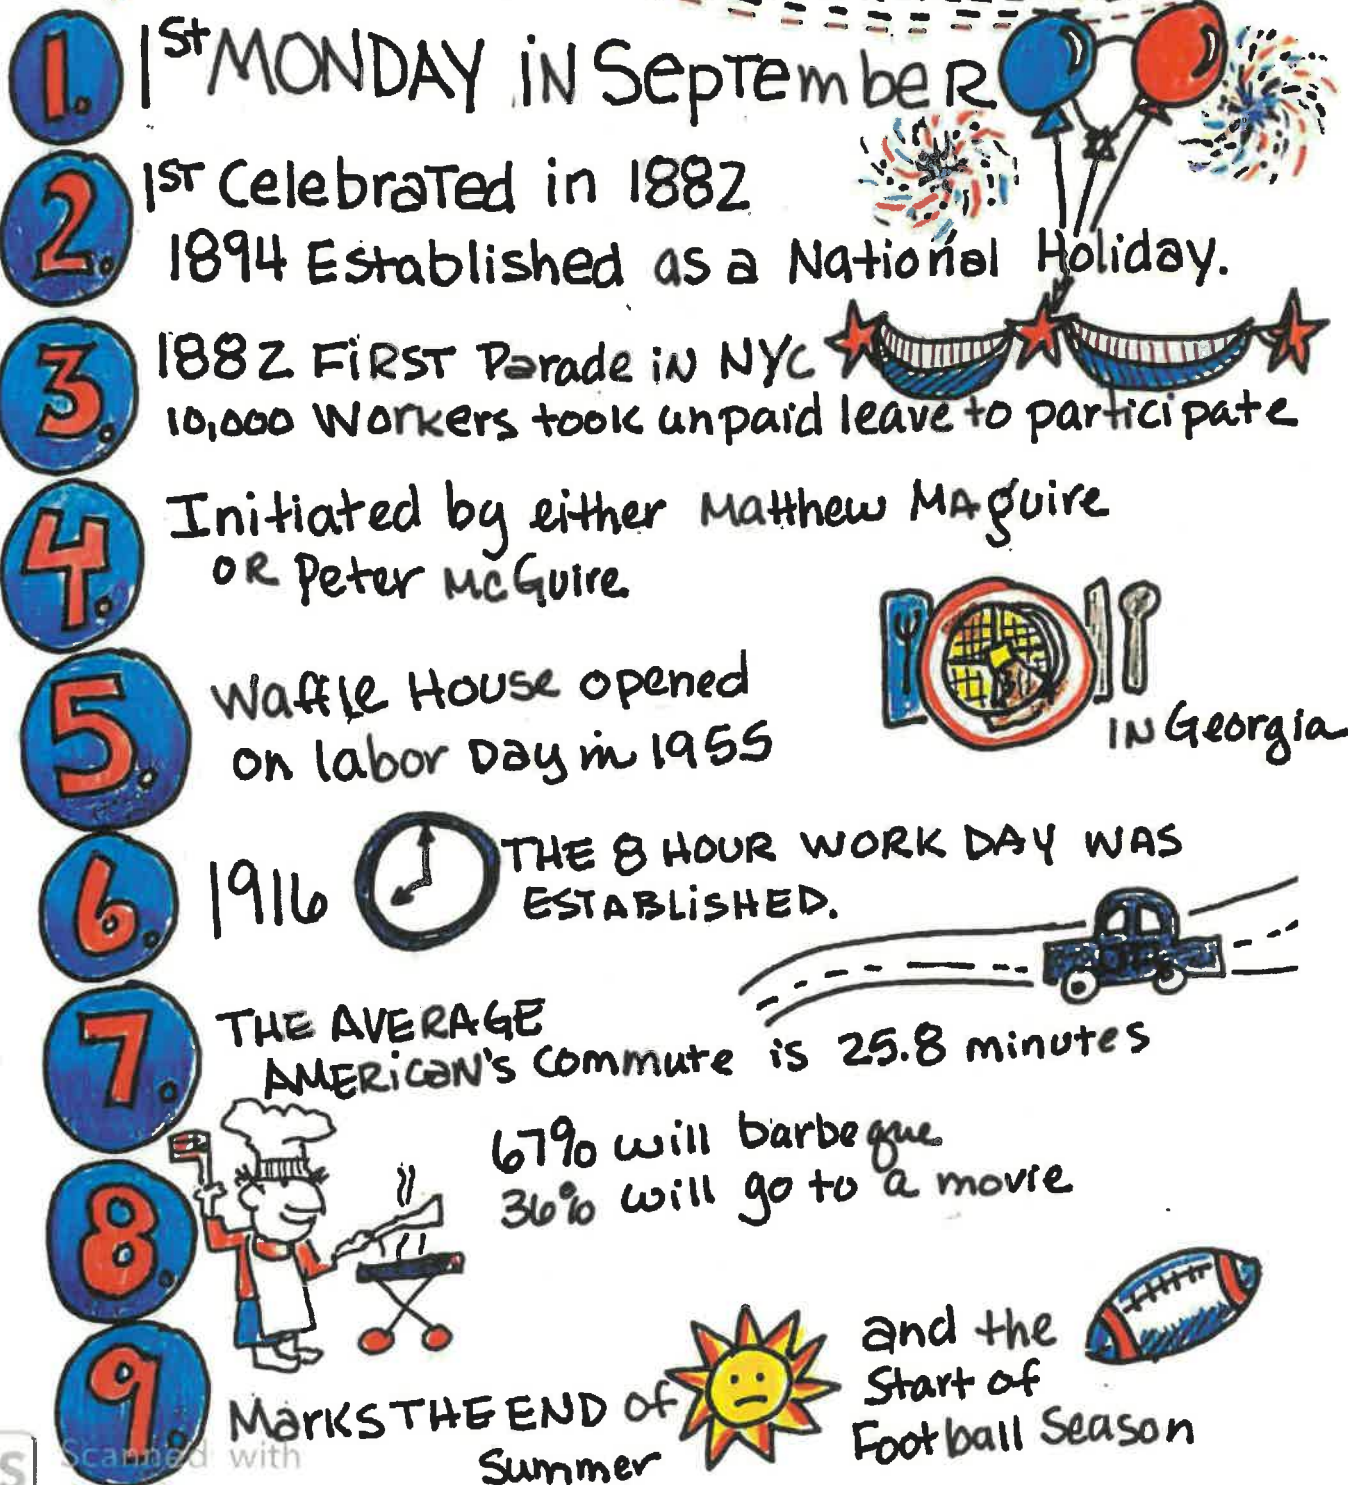 1. 1st MONDAY iN SepTembeR
2. 1ST CelebraTed in 1882
1894 Established as a National Holiday.
3. 1882 FiRST Parade iN NYC
10,000 Workers took unpaid leave to participate
4. Initiated by either Matthew MAguire
OR Peter McGuire
5. Waffle House opened
on labor Day in 1955
IN Georgia
6. 1916 THE 8 HOUR WORK DAY WAS
ESTABLiSHED.
7. THE AVERAGE
AMERiCaN's Commute is 25.8 minutes
8. 67% will barbeque
36% will go to a movie
9. MarKS THE END of
Summer
and the
Start of
Football Season
S Scanned with